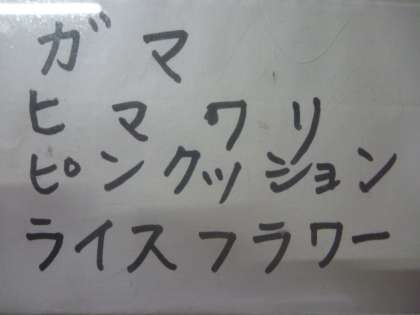 ガマ
ヒマワリ
ピンクッション
ライスフラワー